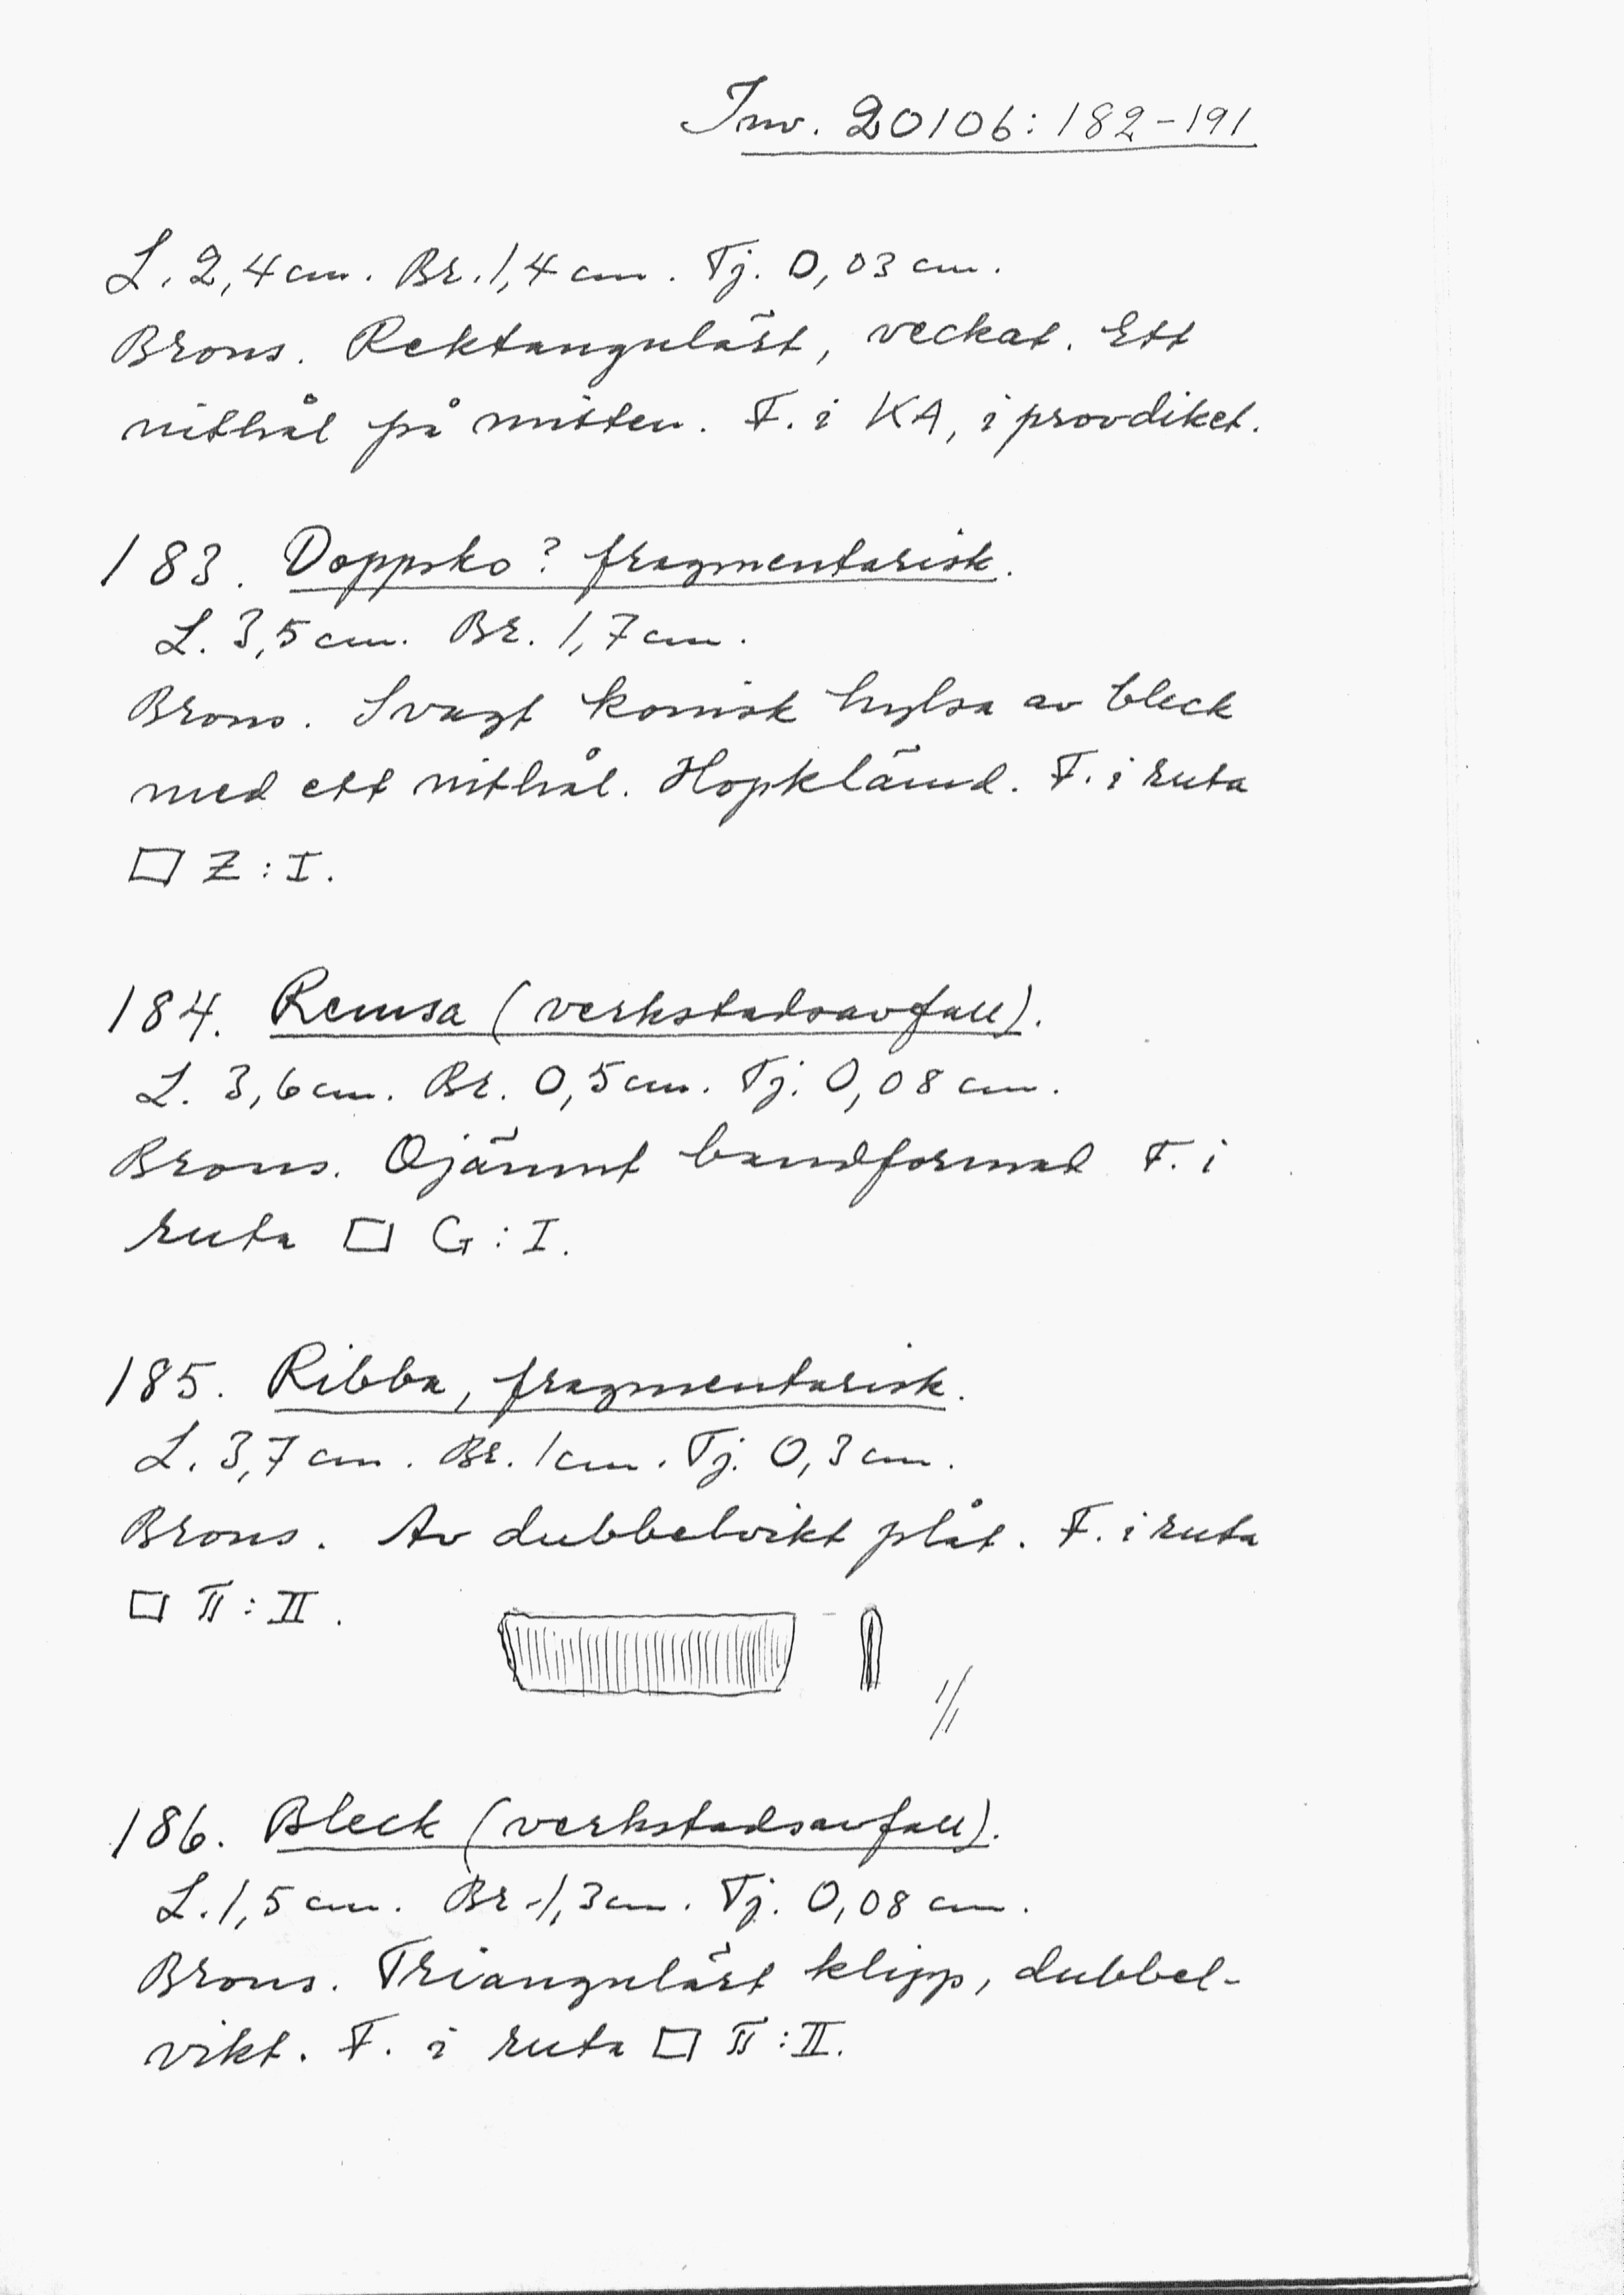 Inv. 20106: 182-191
L. 2,4 cm. Br. 1,4 cm. Tj. 0,03 cm.
Brons. Rektangulärt, veckat. Ett
nithål på mitten. F. i KA, i provdiket.
183. Doppsko? fragmentarisk.
L. 3,5 cm. Br. 1,7 cm.
Brons. Svagt konisk hylsa av bleck
med ett nithål. Hopklämd. F. i ruta
□ Z : I.
184. Remsa (verkstadsavfall).
L. 3,6 cm. Br. 0,5 cm. Tj. 0,08 cm.
Brons. Ojämnt bandformad F. i
ruta □ G : I.
185. Ribba, fragmentarisk.
L. 3,7 cm. Br. 1 cm. Tj. 0,3 cm.
Brons. Av dubbelvikt plåt. F. i ruta
□ II : II.
1/1
186. Bleck (verkstadsavfall).
L. 1,5 cm. Br. 1,3 cm. Tj. 0,08 cm.
Brons. Triangulärt klipp, dubbel-
vikt. F. i ruta □ II : II.